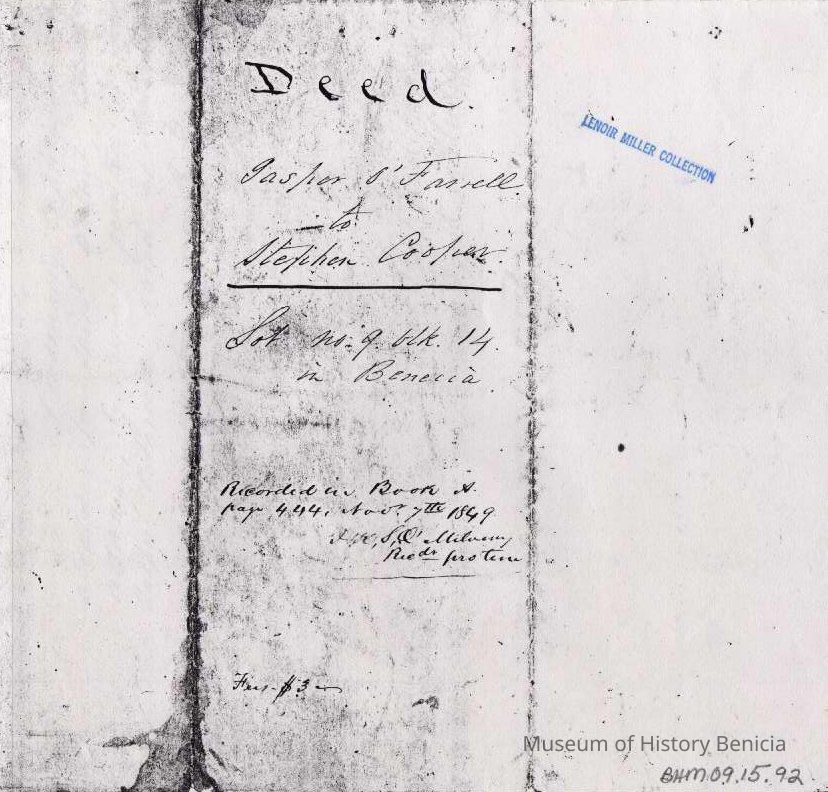 Deed.
LENOIR MILLER COLLECTION
Jasper O'Farrell
to
Stephen Cooper.
Lot no. 9. blk. 14.
in Benicia
Recorded in Book A.
page 444, Nov. 7th 1849
Recdr protem
Fees $3
Museum of History Benicia
BHM.09.15.92